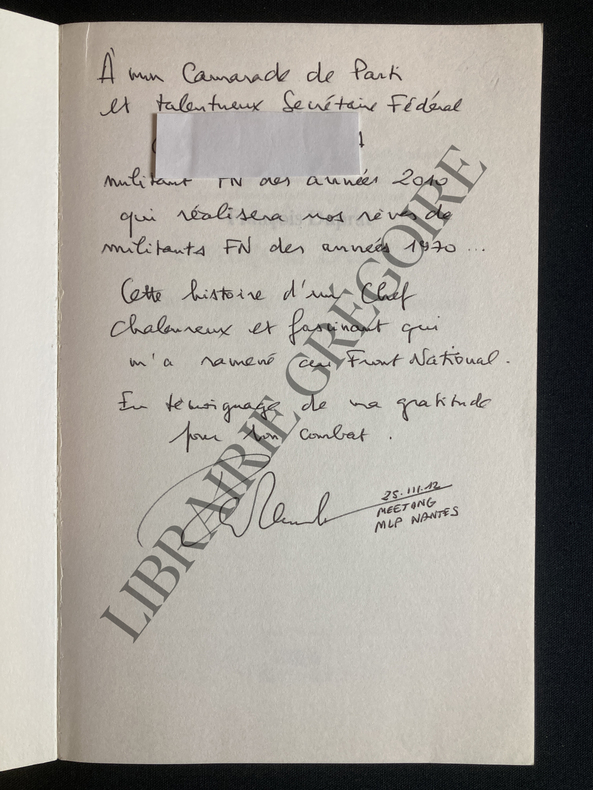 À mon Camarade de Parti
et talentueux Secrétaire Fédéral
militant FN des années 2010
qui réalisera nos rêves de
militants FN des années 1970...
Cette histoire d'un Chef
chaleureux et fascinant qui
m'a ramené au Front National.
En témoignage de ma gratitude
pour ton combat.
25.III.12
MEETING
MLP NANTES
LIBRAIRIE GRÉGOIRE